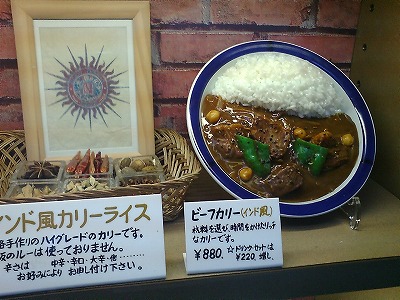 インド風カリーライス
手作りのハイグレードのカリーです。
のルーは使っておりません。
辛さは 中辛・辛口・大辛・他………
お好みにより お申し付け下さい。
ビーフカリー(インド風)
材料を選び、時間をかけたリッチ
なカリーです。
¥880. ☆ドリンク・セットは
¥220. 増し。